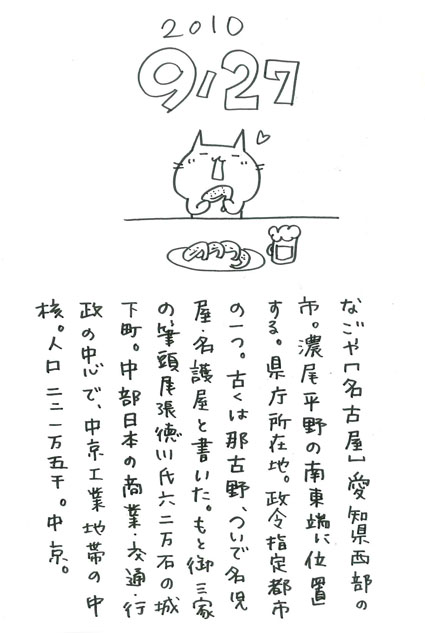 2010
9/27
なごや「名古屋」愛知県西部の
市。濃尾平野の南東端に位置
する。県庁所在地。政令指定都市
の一つ。古くは那古野、ついで名児
屋・名護屋と書いた。もと御三家
の筆頭尾張徳川氏六二万石の城
下町。中部日本の商業・交通・行
政の中心で、中京工業地帯の中
核。人口二二一万五千。中京。